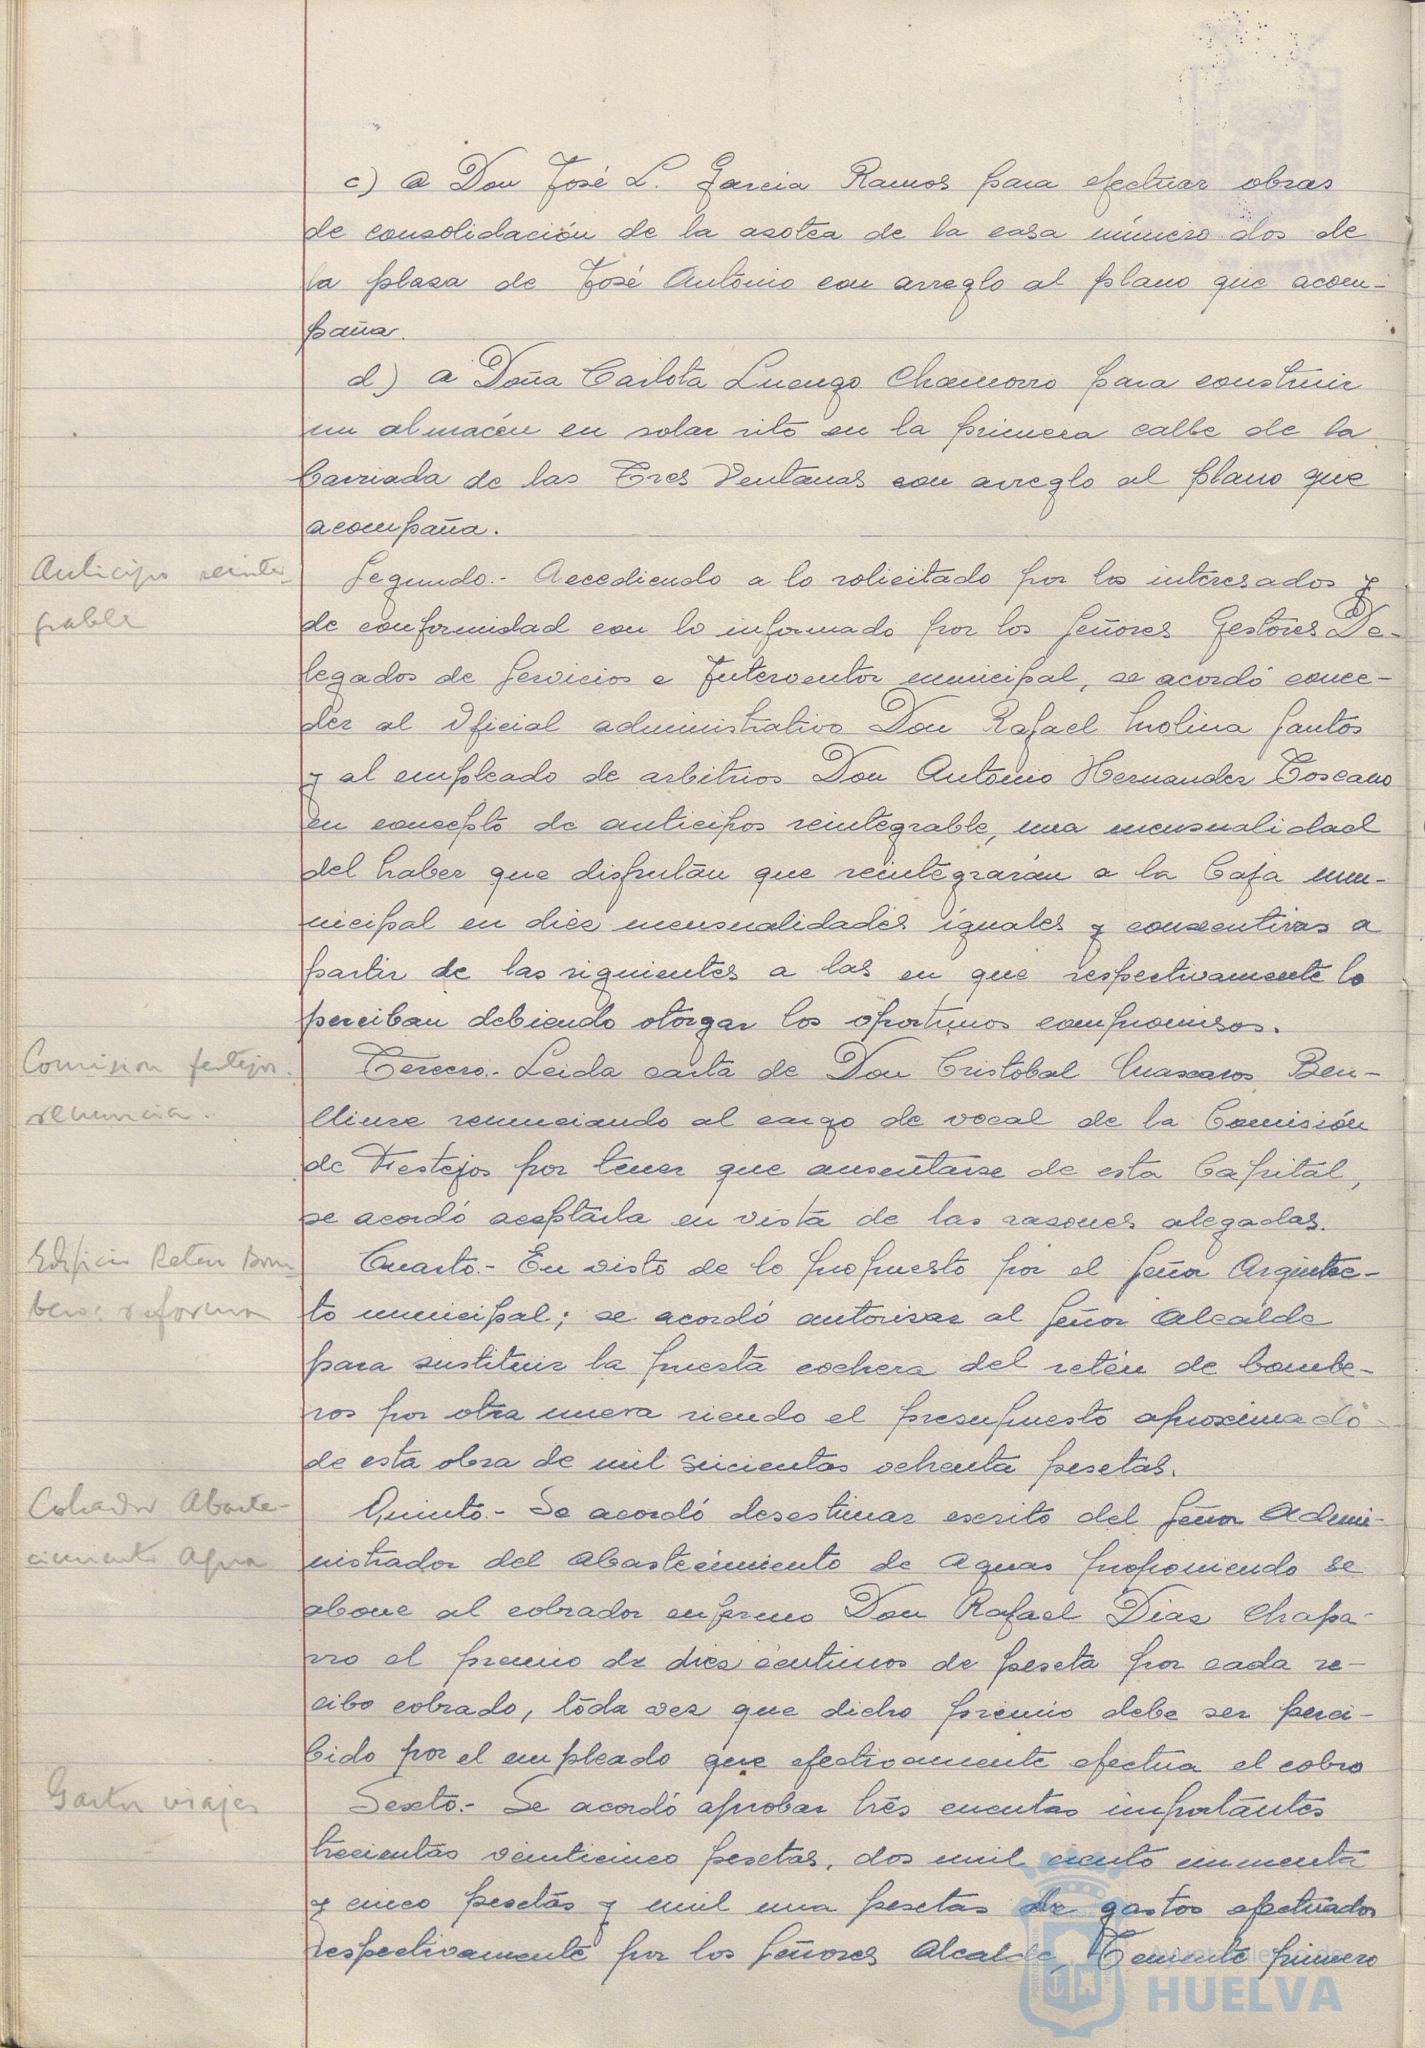 c) a Don José L. Garcia Ramos para efectuar obras
de consolidación de la azotea de la casa número dos de
la plaza de José Antonio con arreglo al plano que acom-
paña.
d) a Doña Carlota Luengo Chamorro para construir
un almacén en solar sito en la primera calle de la
barriada de las Tres Ventanas con arreglo al plano que
acompaña.
Anticipo reinte-
grable
Segundo.- Accediendo a lo solicitado por los interesados y
de conformidad con lo informado por los Señores Gestores De-
legados de Servicios e Interventor municipal, se acordó conce-
der al Oficial administrativo Don Rafael Molina Santos
y al empleado de arbitrios Don Antonio Hernandez Toscano
en concepto de anticipos reintegrable, una mensualidad
del haber que disfrutan que reintegrarán a la Caja mu-
nicipal en diez mensualidades iguales y consecutivas a
partir de las siguientes a las en que respectivamente lo
perciban debiendo otorgar los oportunos compromisos.
Comision festejos.
renuncia.
Tercero.- Leida carta de Don Cristobal Mascaros Ben-
lliure renunciando al cargo de vocal de la Comisión
de Festejos por tener que ausentarse de esta Capital,
se acordó aceptarla en vista de las razones alegadas.
Edificio Reten Bom-
beros reforma
Cuarto.- En visto de lo propuesto por el Señor Arquitec-
to municipal; se acordó autorizar al Señor Alcalde
para sustituir la puesta cochera del retén de bombe-
ros por otra nueva siendo el presupuesto aproximado
de esta obra de mil seicientas ochenta pesetas.
Cobrador Abaste-
cimiento Agua
Quinto.- Se acordó desestimar escrito del Señor Admi-
nistrador del Abastecimiento de Aguas proponiendo se
abone al cobrador enfermo Don Rafael Diaz Chapa-
rro el premio de diez centimos de peseta por cada re-
cibo cobrado, toda vez que dicho premio debe ser perci-
bido por el empleado que efectivamente efectua el cobro
Gastos viajes
Sexto.- Se acordó aprobar trés cuentas importantes
trecientas veinticinco pesetas, dos mil ciento
y cinco pesetas y mil una pesetas de gastos efectuados
respectivamente por los Señores Alcalde, Teniente primero
Ayuntamiento de
HUELVA